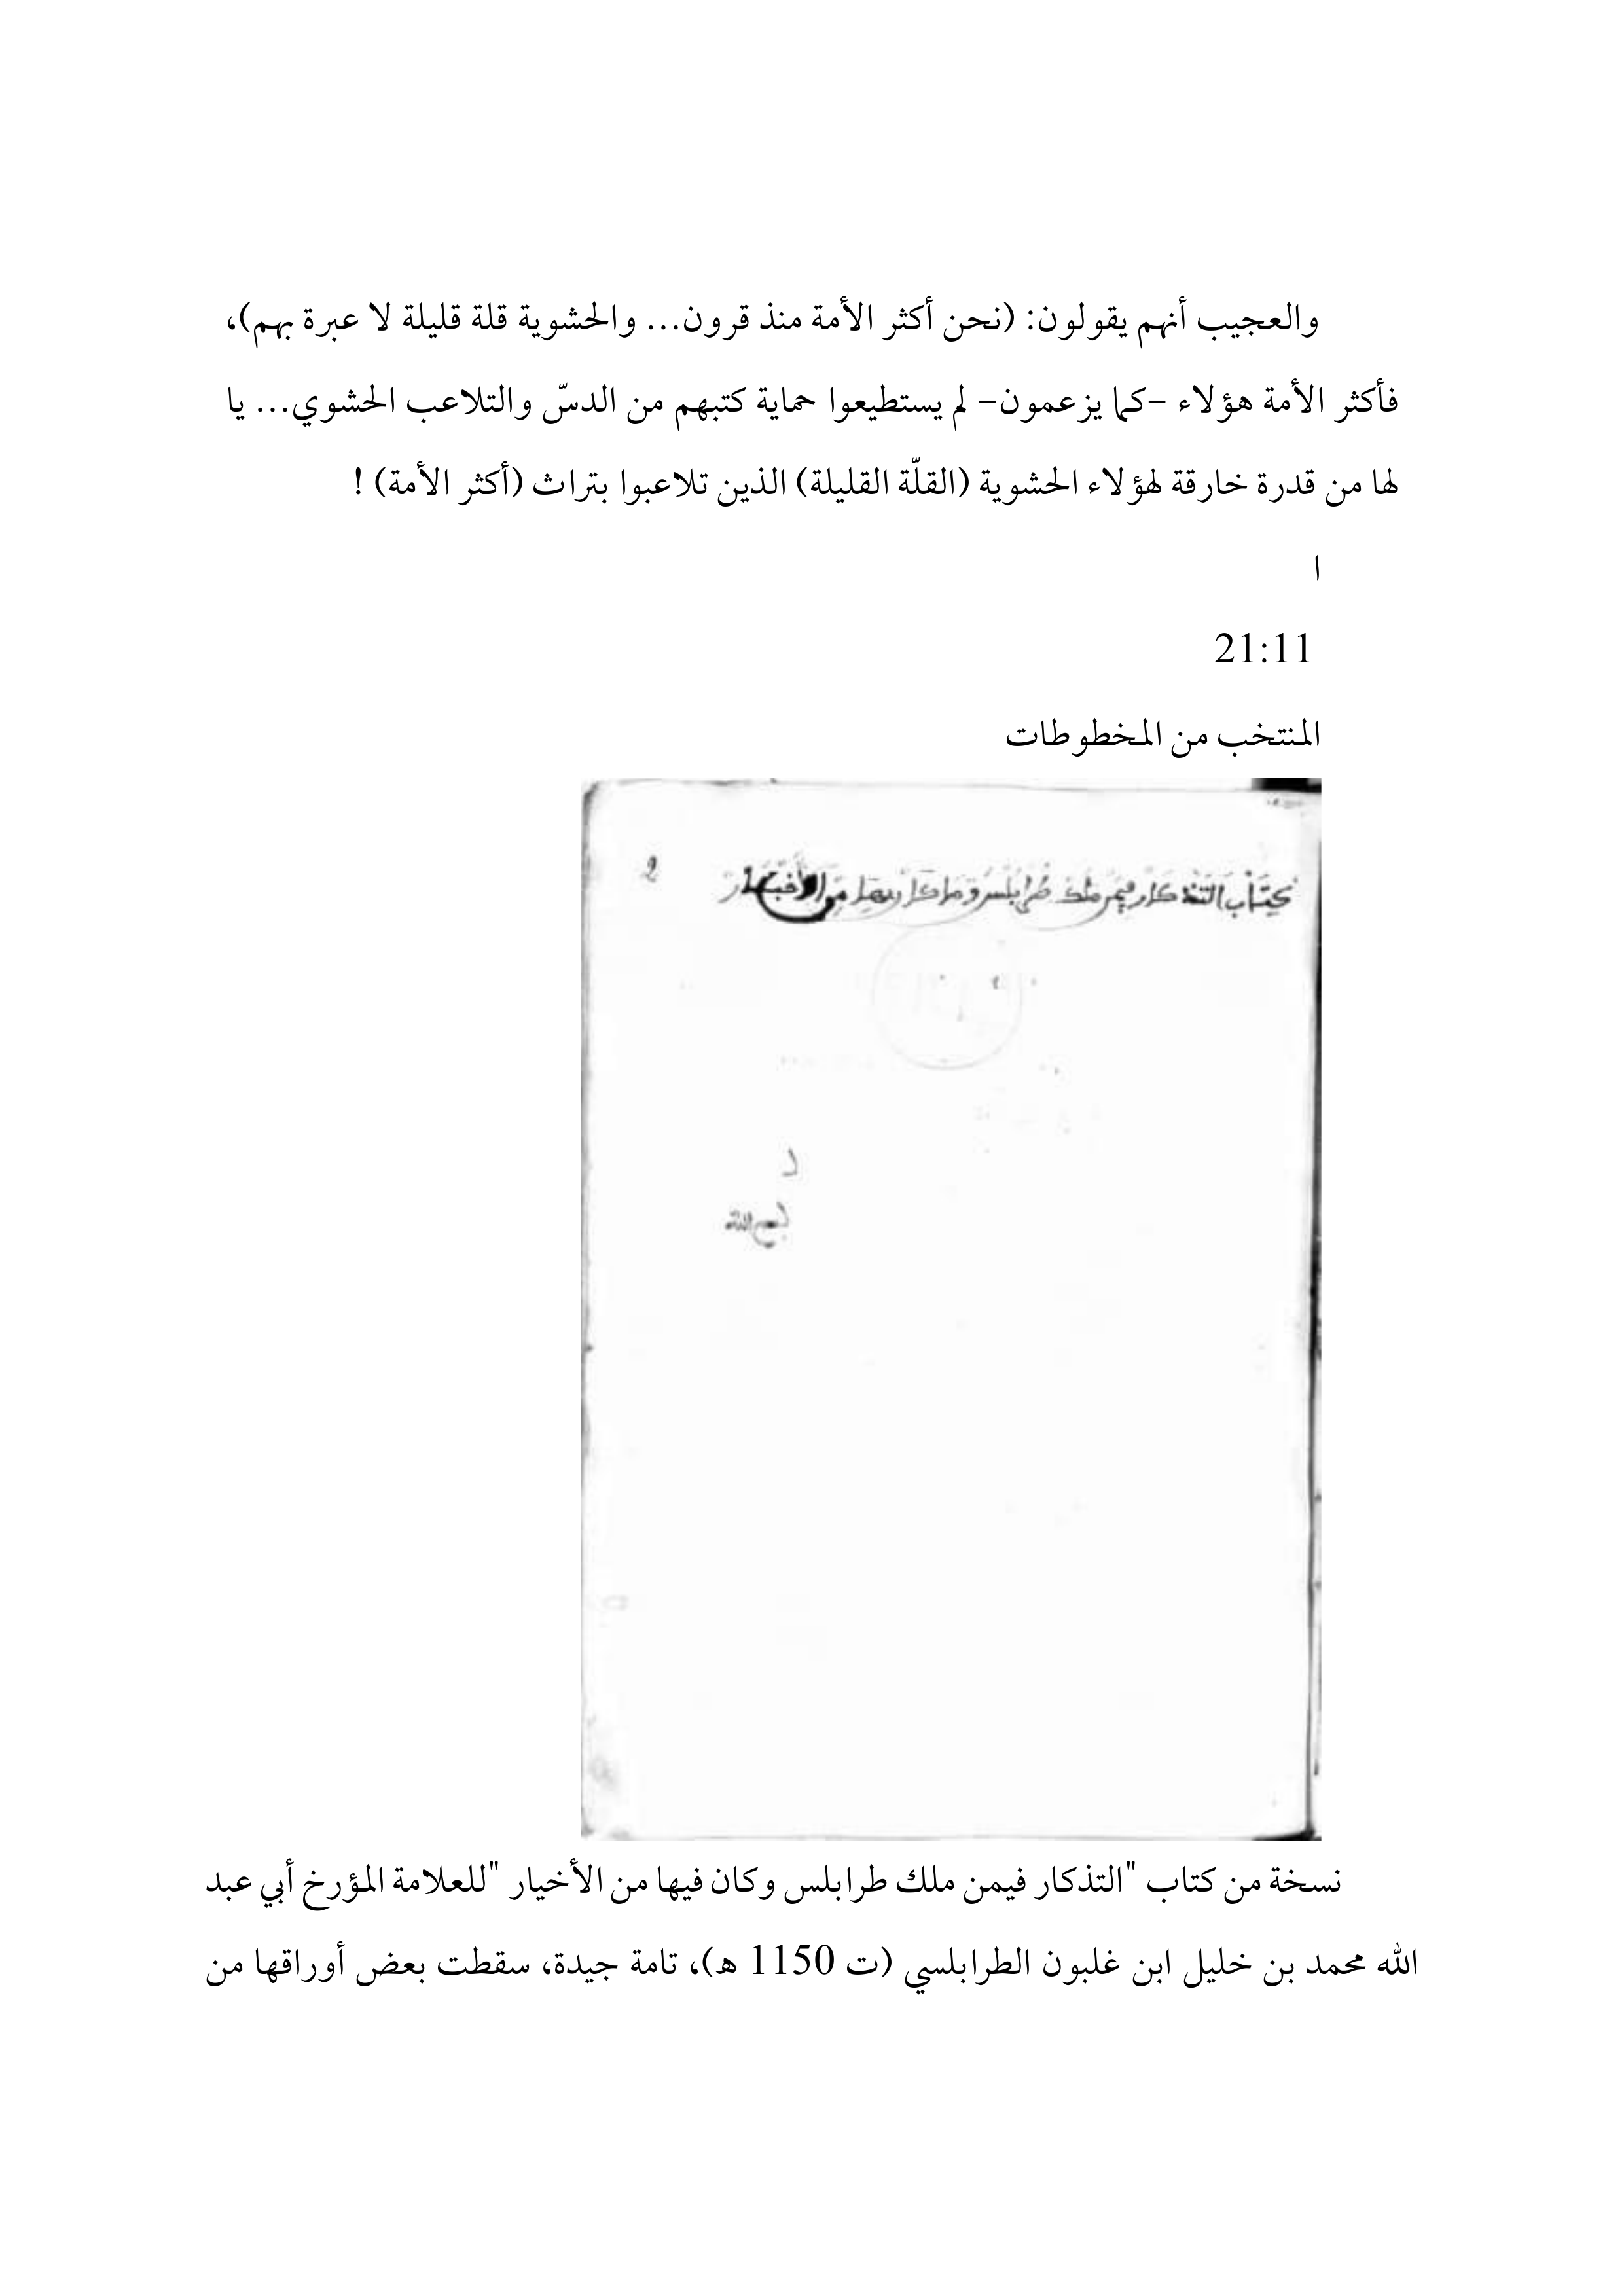 والعجيب أنهم يقولون: (نحن أكثر الأمة منذ قرون... والحشوية قلة قليلة لا عبرة بهم)،
فأكثر الأمة هؤلاء –كما يزعمون– لم يستطيعوا حماية كتبهم من الدسّ والتلاعب الحشوي... يا
لها من قدرة خارقة لهؤلاء الحشوية (القلّة القليلة) الذين تلاعبوا بتراث (أكثر الأمة) !
ا
21:11
المنتخب من المخطوطات
كتاب التذكار فيمن ملك طرابلس وما كان بها من الأخيار
2
بسم الله
نسخة من كتاب "التذكار فيمن ملك طرابلس وكان فيها من الأخيار "للعلامة المؤرخ أبي عبد
الله محمد بن خليل ابن غلبون الطرابلسي (ت 1150 ه)، تامة جيدة، سقطت بعض أوراقها من